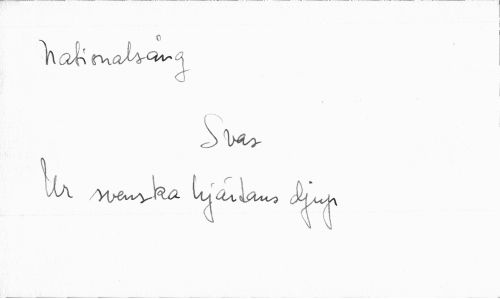 Nationalsång
Svas
Ur svenska hjärtans djup